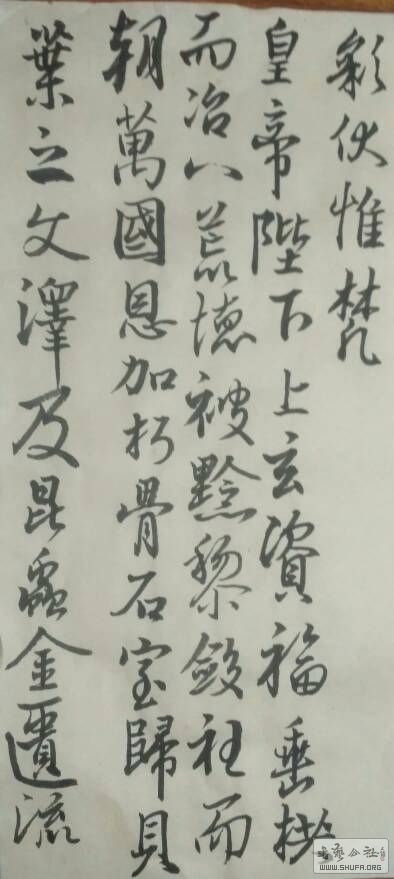 彩伏惟梵
皇帝陛下上玄資福垂拱
而治八荒德被黔黎斂衽而
朝萬國恩加朽骨石室歸貝
葉之文澤及昆蟲金匱流
书艺公社
WWW.SHUFA.ORG